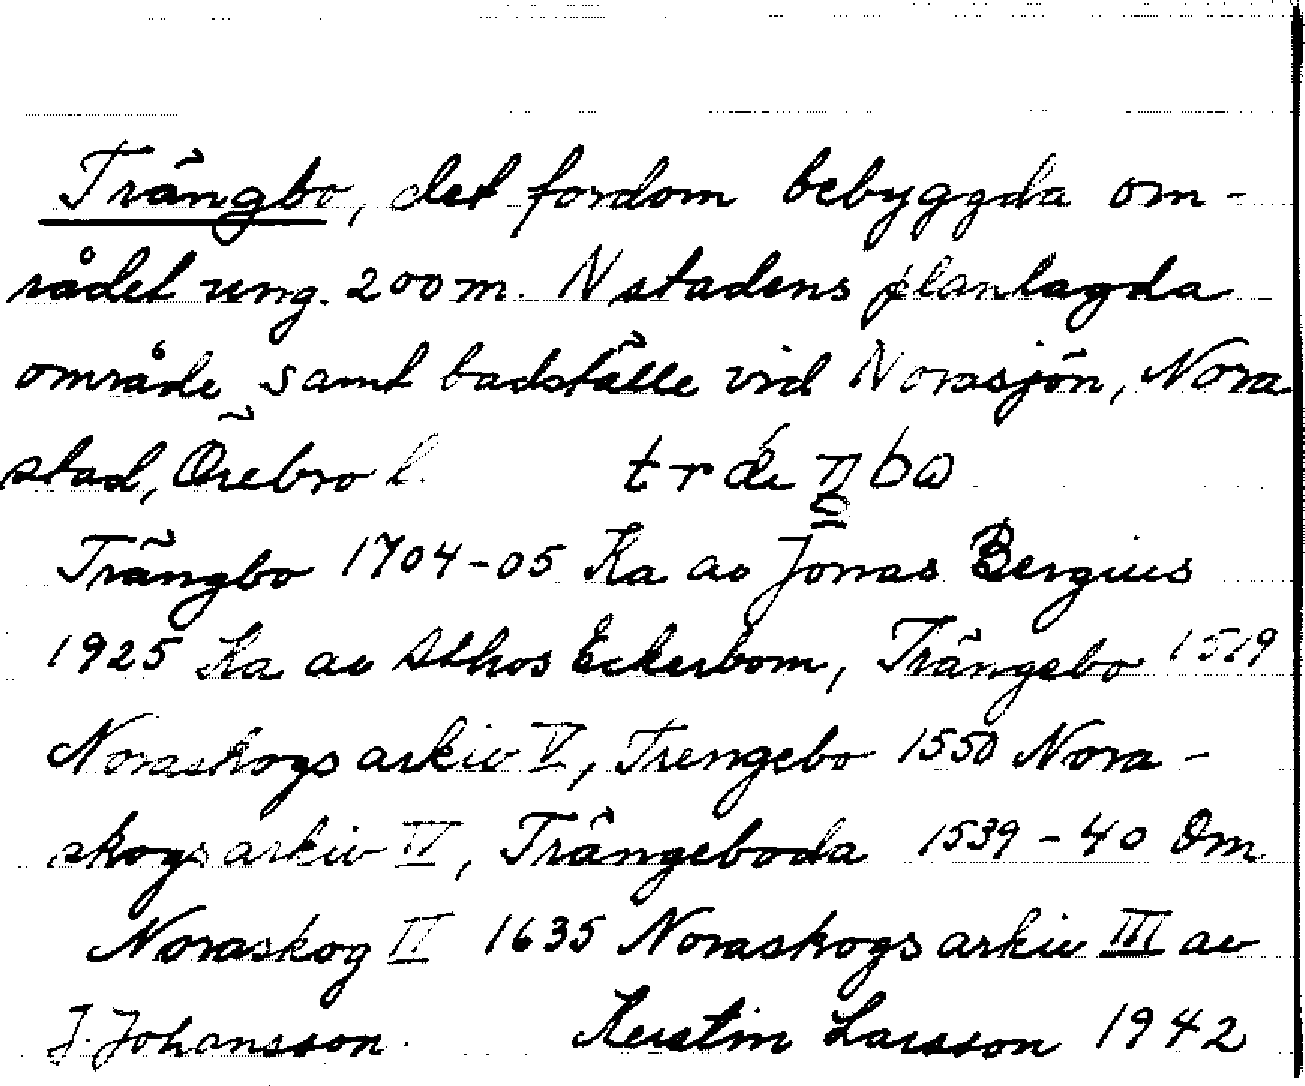 Trängbo, det fordom bebyggda om-
rådet ung. 200 m. N stadens planlagda
område samt badställe vid Norasjön, Nora
stad, Örebro l.
Trängbo 1704-05 Ka av Jonas Bergius
1925 Ka av Athos Eckerbom, Trängebo
Noraskogs arkiv V, Trengebo 1550 Nora-
skogs arkiv IV, Trängeboda 1539-40 Om
Noraskog II 1635 Noraskogs arkiv III av
J. Johansson. Kerstin Larsson 1942